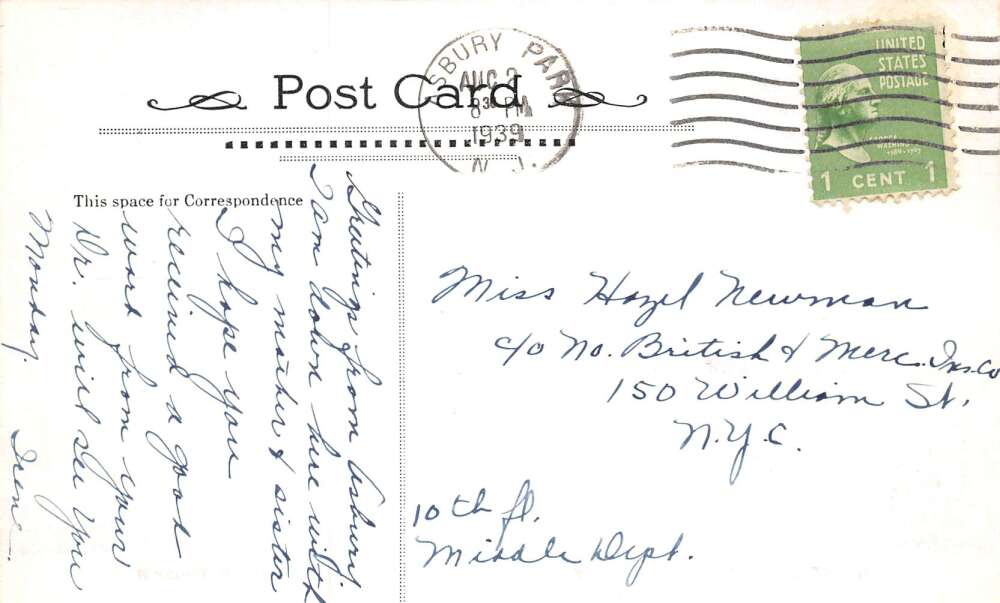 Post Card
ASBURY PARK
AUG 2
8 30 PM
1939
N. J.
UNITED
STATES
POSTAGE
GEORGE
WASHINGTON
1789-1797
1 CENT 1
This space for Correspondence
Greetings from Asbury.
I am down here with
my mother & sister
I hope you
received a good
word from your
Dr. will see you
Monday.
Irene
Miss Hazel Newman
c/o No. British & Merc. Ins. Co
150 William St.
N.Y.C.
10th fl.
Middle Dept.